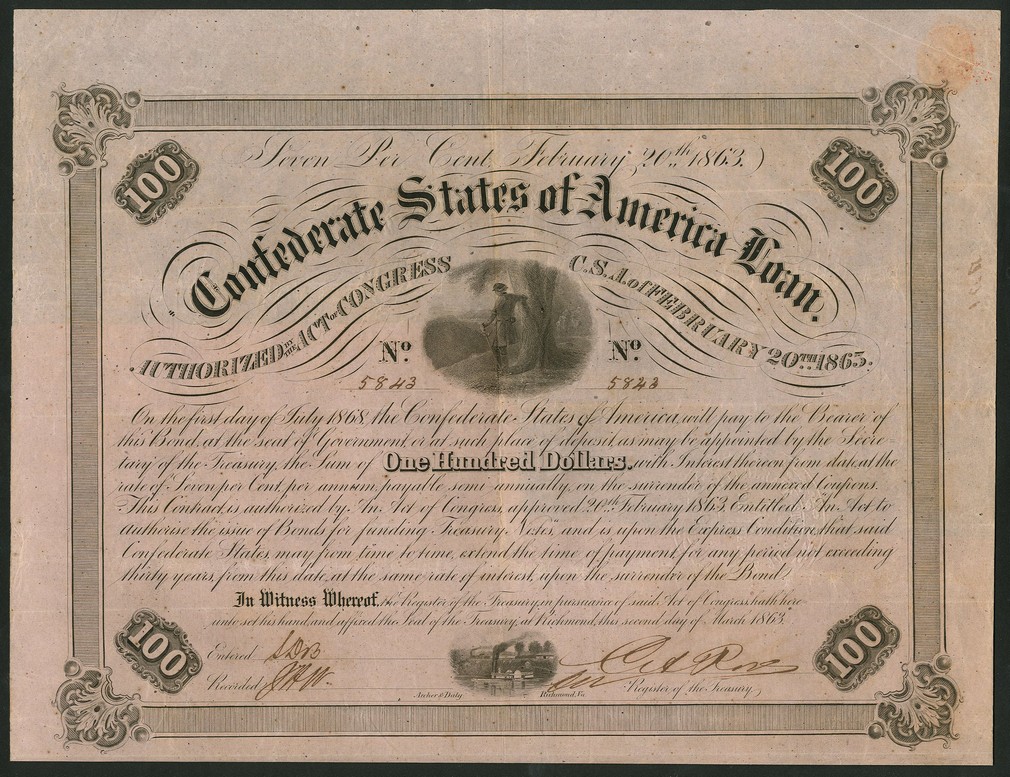 100
100
Seven Per Cent, February, 20th 1863.)
Confederate States of America Loan.
AUTHORIZED BY THE ACT OF CONGRESS
C.S.A. of FEBRUARY 20TH 1863.
No
No
5843
5843
On the first day of July 1868, the Confederate States of America, will pay to the Bearer of
this Bond, at the seat of Government, or at such place of deposit, as may be appointed by the Secre-
tary of the Treasury, the Sum of One Hundred Dollars, with Interest thereon from date, at the
rate of Seven per Cent, per annum, payable semi annually, on the surrender of the annexed Coupons.
This Contract is authorized by An Act of Congress, approved 20th February 1863, Entitled "An Act to
authorise the issue of Bonds for funding Treasury Notes", and is upon the Express Condition, that said
Confederate States, may from time to time, extend the time of payment, for any period not exceeding
thirty years, from this date, at the same rate of interest, upon the surrender of the Bond.
In Witness Whereof, the Register of the Treasury, in pursuance of said Act of Congress, hath here-
unto set his hand, and affixed the Seal of the Treasury, at Richmond, this second day of March 1863.
100
100
Entered
Recorded
Register of the Treasury
Archer & Daly
Richmond, Va.